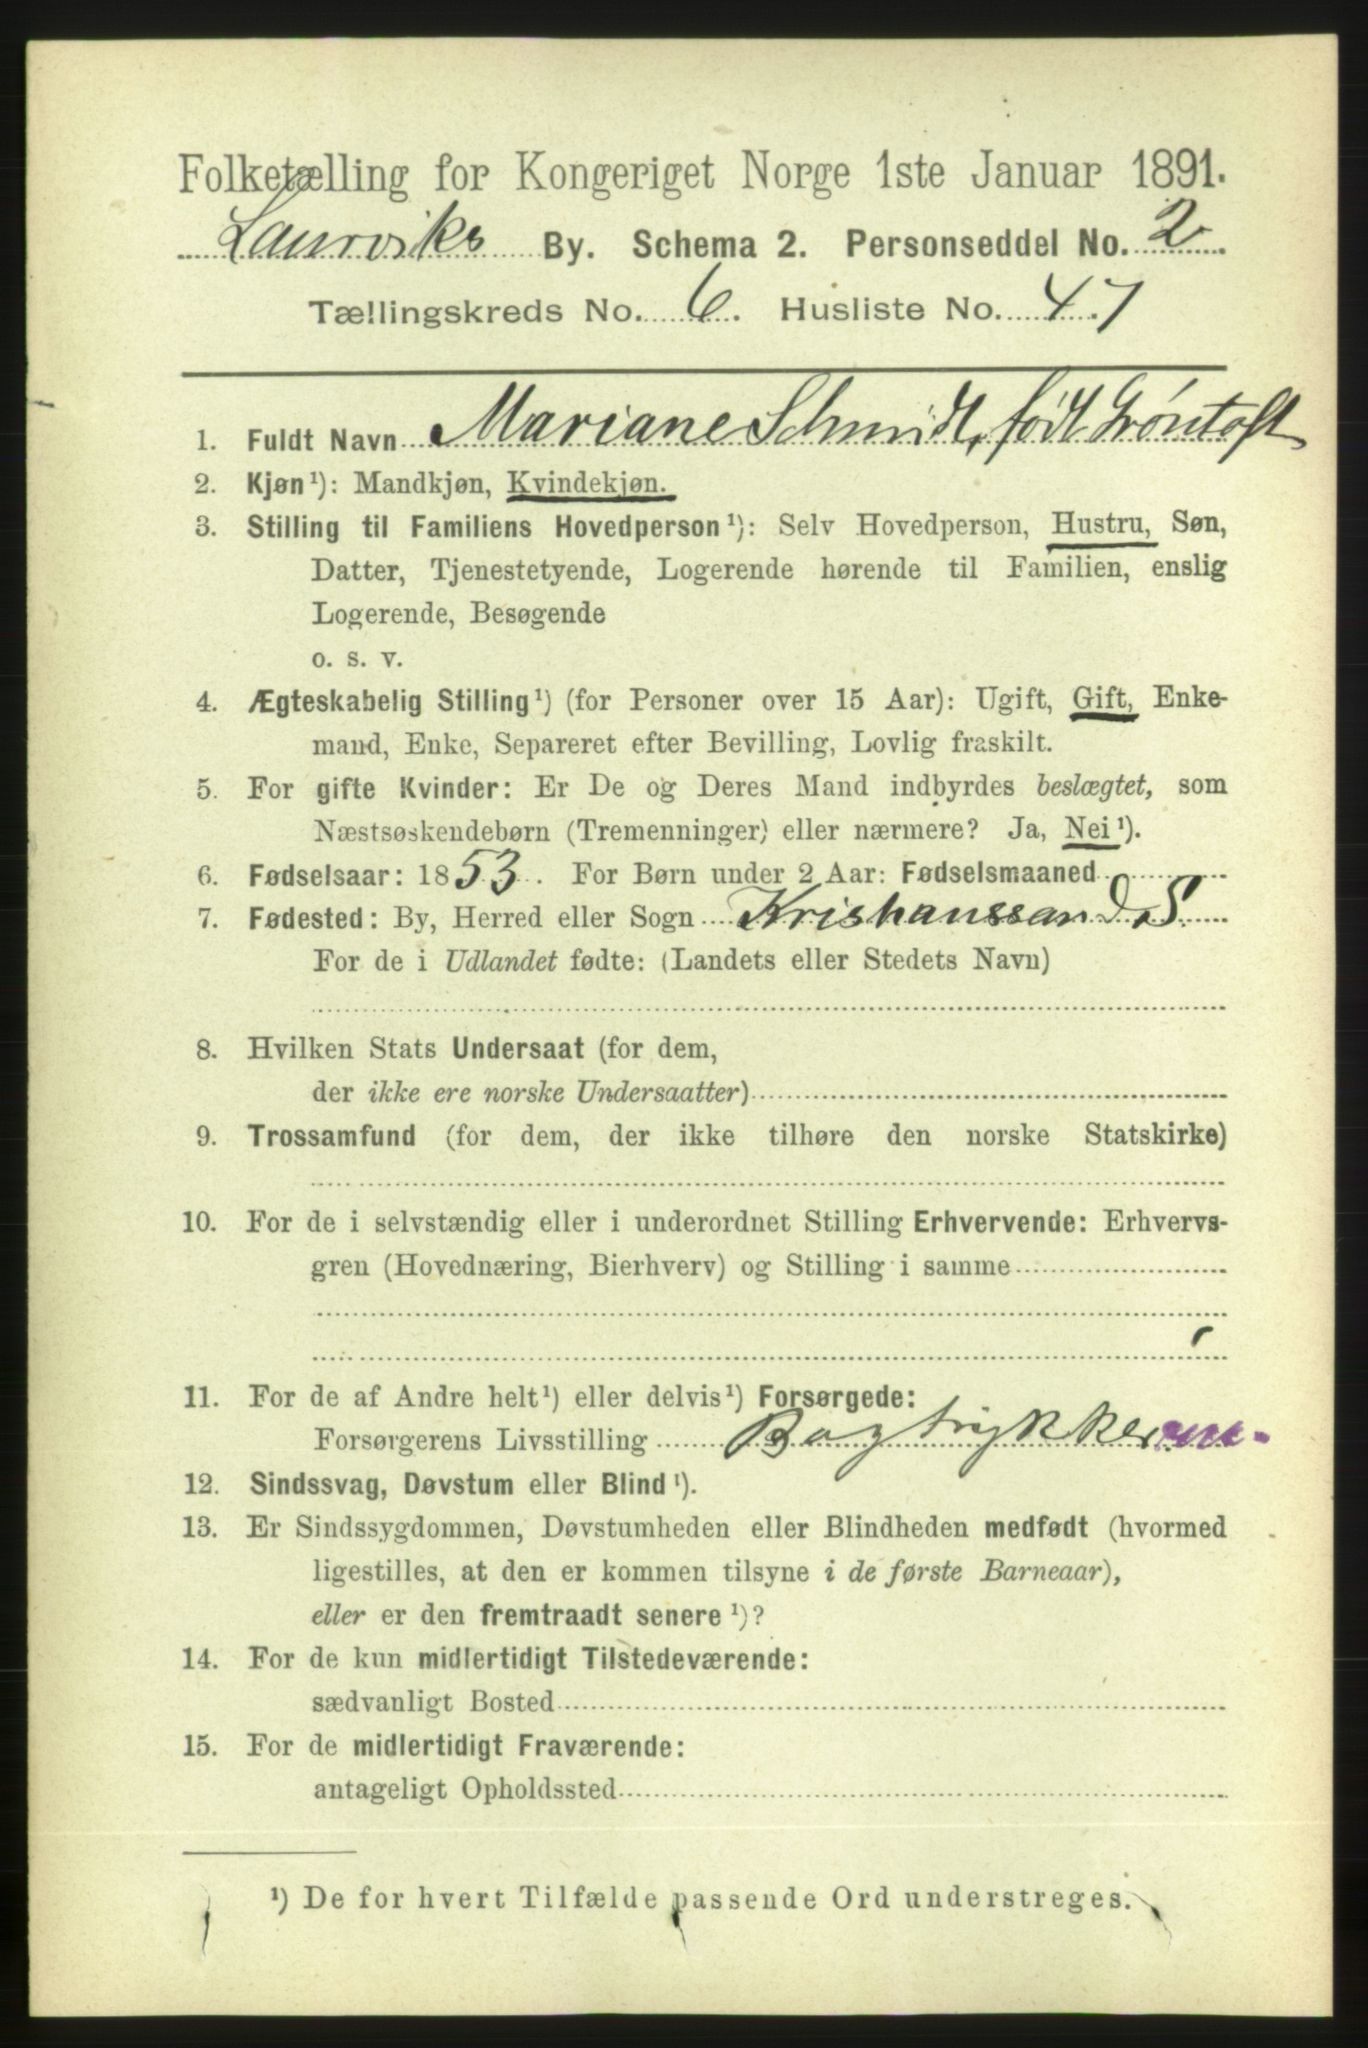 Folketælling for Kongeriget Norge 1ste Januar 1891.
Laurviks By. Schema 2. Personseddel No. 2
Tællingskreds No. 6. Husliste No. 47
1. Fuldt Navn Mariane Schmidt, født Grøntoft
2. Kjøn¹): Mandkjøn, Kvindekjøn.
3. Stilling til Familiens Hovedperson¹): Selv Hovedperson, Hustru, Søn,
Datter, Tjenestetyende, Logerende hørende til Familien, enslig
Logerende, Besøgende
o. s. v.
4. Ægteskabelig Stilling¹) (for Personer over 15 Aar): Ugift, Gift, Enke-
mand, Enke, Separeret efter Bevilling, Lovlig fraskilt.
5. For gifte Kvinder: Er De og Deres Mand indbyrdes beslægtet, som
Næstsøskendebørn (Tremenninger) eller nærmere? Ja, Nei¹).
6. Fødselsaar: 1853. For Børn under 2 Aar: Fødselsmaaned
7. Fødested: By, Herred eller Sogn Kristianssand S.
For de i Udlandet fødte: (Landets eller Stedets Navn)
8. Hvilken Stats Undersaat (for dem,
der ikke ere norske Undersaatter)
9. Trossamfund (for dem, der ikke tilhøre den norske Statskirke)
10. For de i selvstændig eller i underordnet Stilling Erhvervende: Erhvervs-
gren (Hovednæring, Bierhverv) og Stilling i samme
11. For de af Andre helt¹) eller delvis¹) Forsørgede:
Forsørgerens Livsstilling Bogtrykker
12. Sindssvag, Døvstum eller Blind¹).
13. Er Sindssygdommen, Døvstumheden eller Blindheden medfødt (hvormed
ligestilles, at den er kommen tilsyne i de første Barneaar),
eller er den fremtraadt senere¹)?
14. For de kun midlertidigt Tilstedeværende:
sædvanligt Bosted
15. For de midlertidigt Fraværende:
antageligt Opholdssted
¹) De for hvert Tilfælde passende Ord understreges.